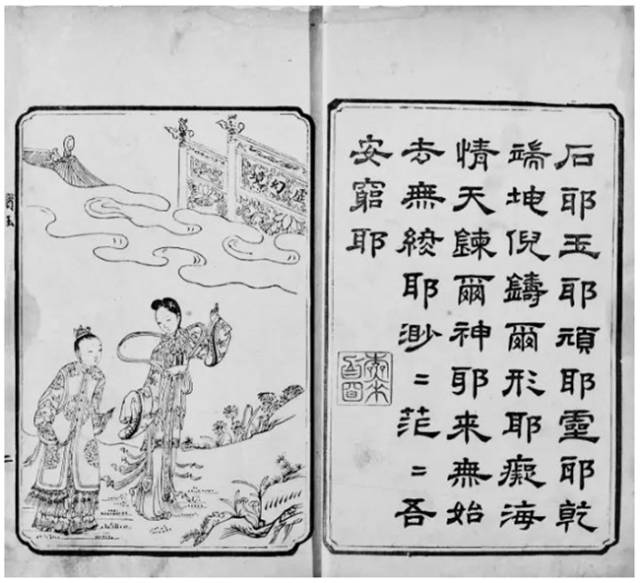 石耶玉耶頑耶靈耶乾
端坤倪鑄爾形耶癡海
情天鍊爾神耶来無始
去無終耶渺〻茫〻吾
安窮耶
虛幻境
二